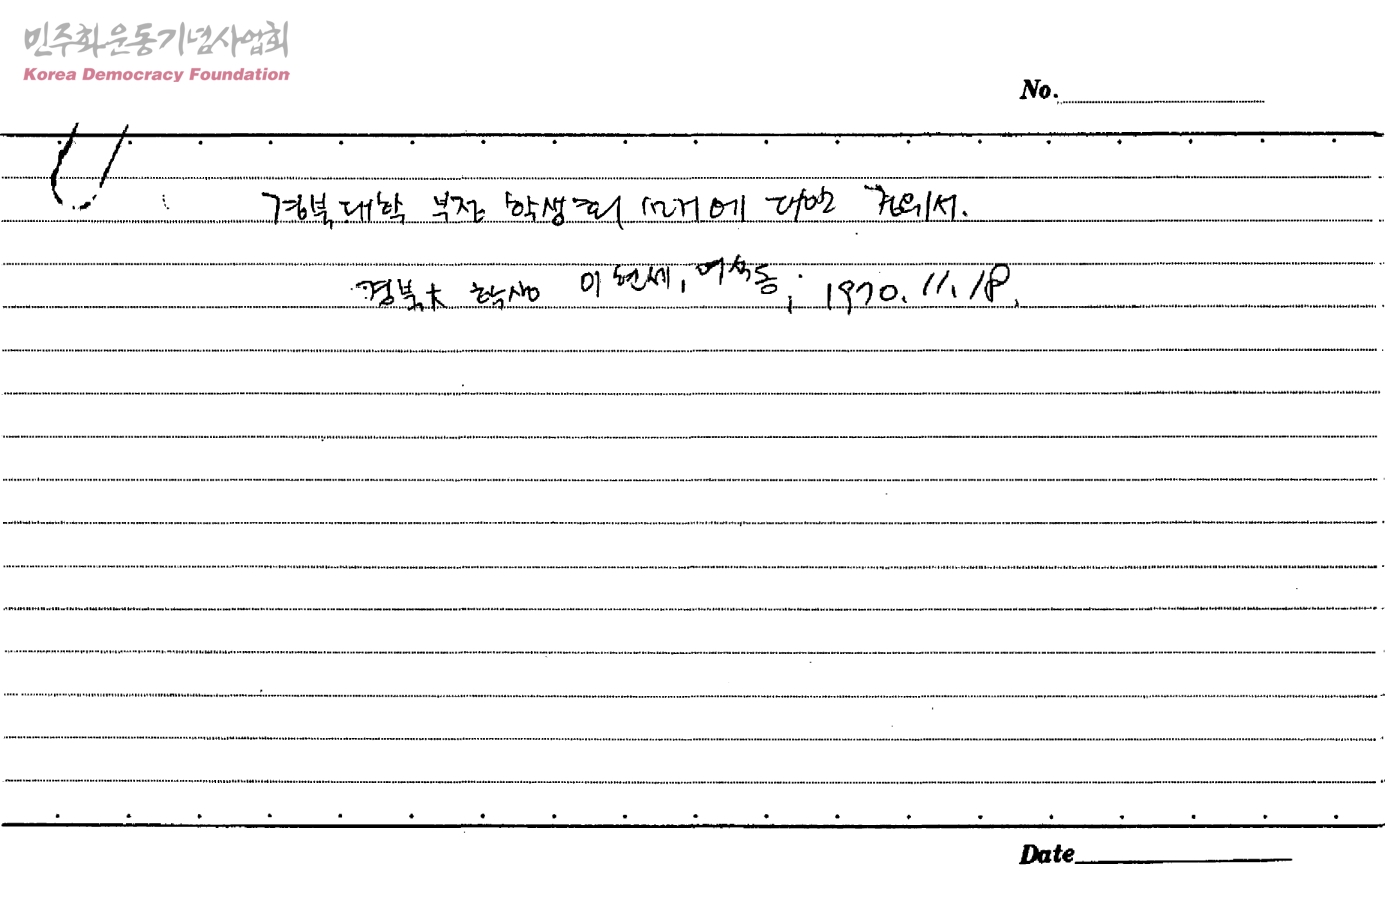 민주화운동기념사업회
Korea Democracy Foundation
No.
경북대학 부정 학생회 선거에 대한 건의서.
경북大 학생 이현세, 여석동; 1970. 11. 18.
Date